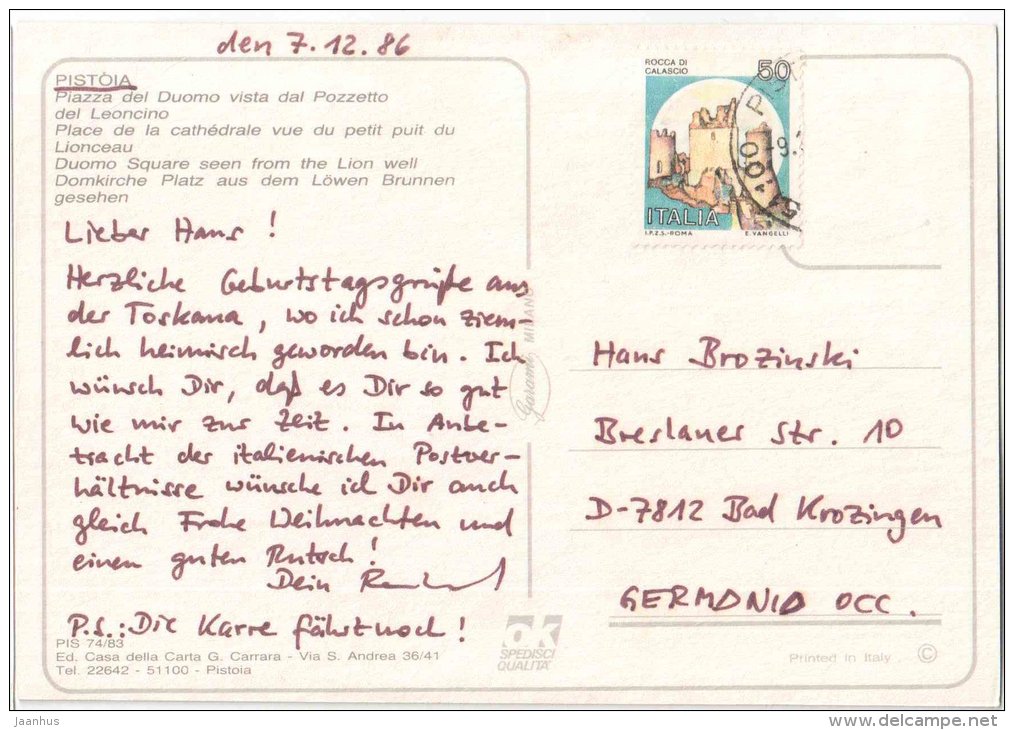 den 7.12.86
PISTÒIA
Piazza del Duomo vista dal Pozzetto
del Leoncino
Place de la cathédrale vue du petit puit du
Lionceau
Duomo Square seen from the Lion well
Domkirche Platz aus dem Löwen Brunnen
gesehen
Lieber Hans !
Herzliche Geburtstagsgrüße aus
der Toskana, wo ich schon ziem-
lich heimisch geworden bin. Ich
wünsch Dir, daß es Dir so gut
wie mir zur Zeit. In Anbe-
tracht der italienischen Postver-
hältnisse wünsche ich Dir auch
gleich Frohe Weihnachten und
einen guten Rutsch!
Dein
P.S.: Die Karre fährt noch!
PIS 74/83
Ed. Casa della Carta G. Carrara - Via S. Andrea 36/41
Tel. 22642 - 51100 - Pistoia
MILANO
ok
SPEDISCI
QUALITA'
ROCCA DI
CALASCIO
50
ITALIA
I.P.Z.S.-ROMA E. VANGELLI
Hans Brozinski
Breslauer Str. 10
D-7812 Bad Krozingen
GERMANIA OCC.
Printed in Italy - ©
jaanhus
www.delcampe.net